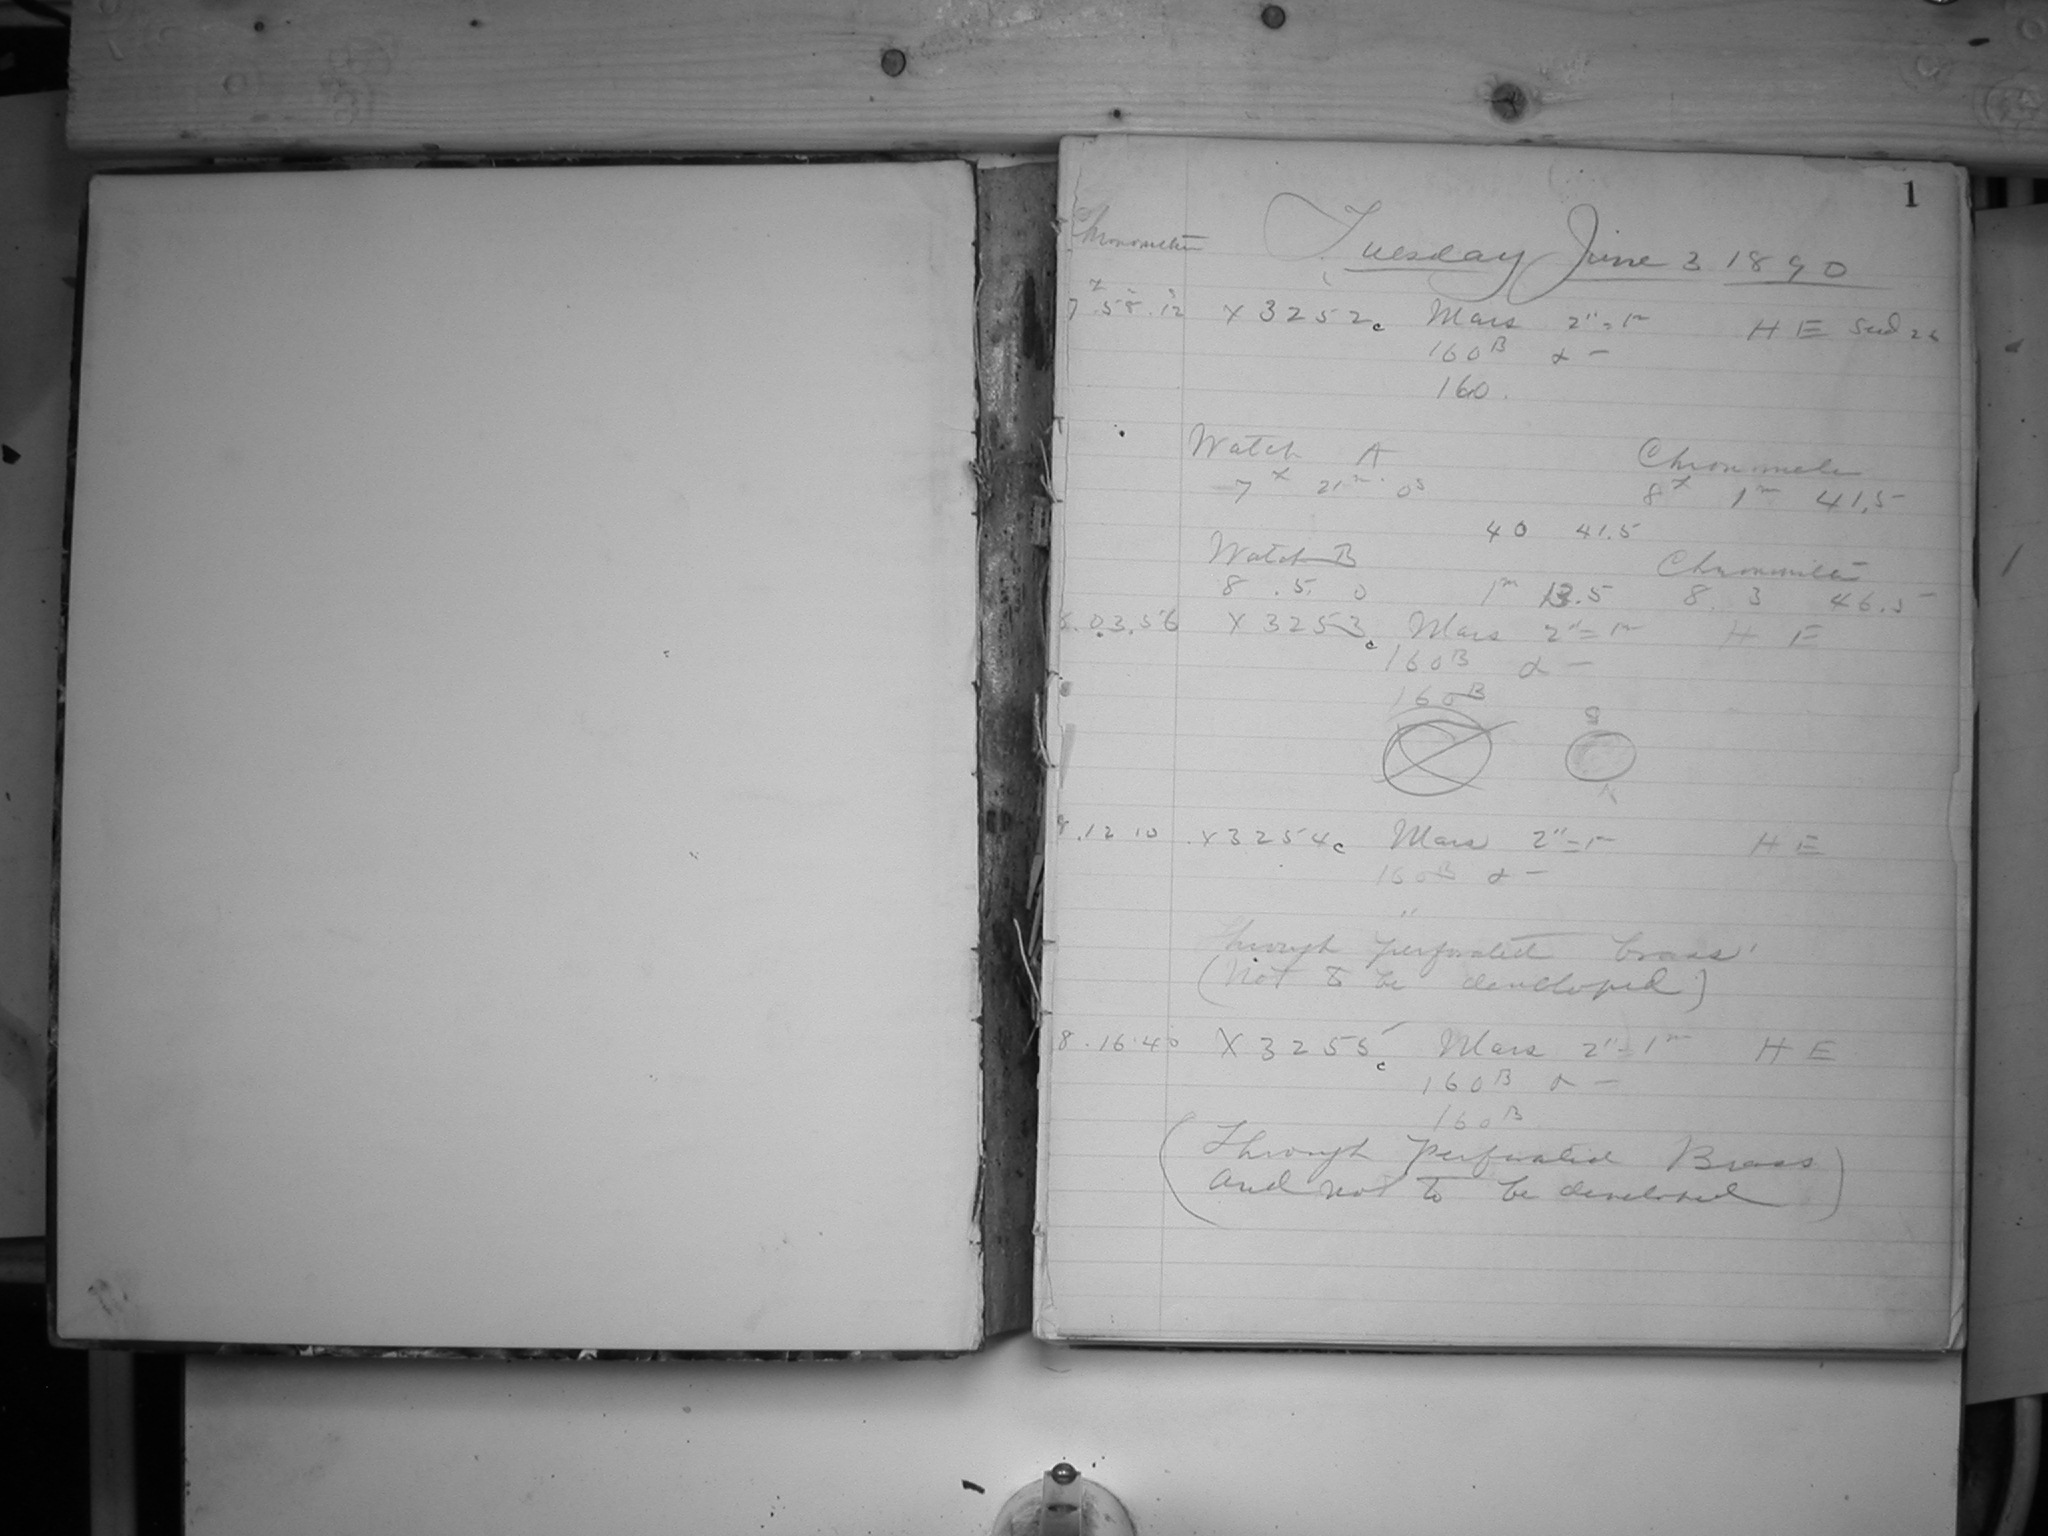 1
Chronometer
Tuesday June 3 1890
7.58.12 X 3252c Mars 2" = 1m H E Seed 26
160B α —
160.
Watch A Chronometer
7h 21m 0s 8h 1m 41.5
40 41.5
Watch B Chronometer
8 .5. 0 1m 13.5 8. 3 46.5
8.03.56 X 3253c Mars 2" = 1m H E
160B α —
160B
S
N
8.12 10 X 3254c Mars 2" = 1m H E
160B α —
"
Through perforated brass
(Not to be developed)
8.16.40 X 3255c Mars 2" = 1m H E
160B α —
160B
(Through perforated Brass
and not to be developed)